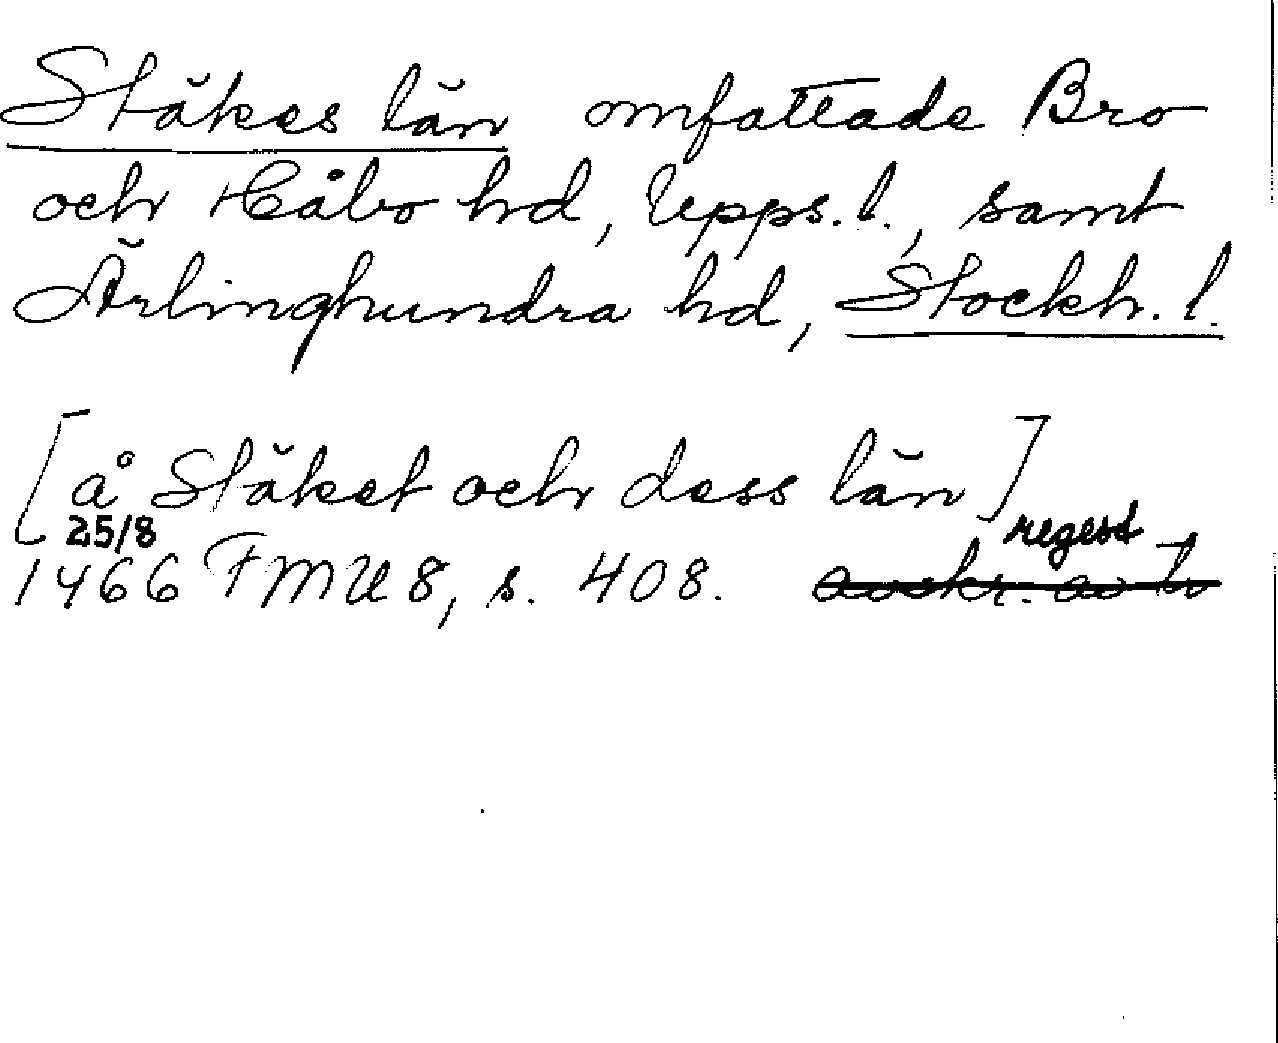 Stäkes län omfattade Bro
och Håbo hd, Upps. l., samt
Ärlinghundra hd, Stockh. l.
[å Stäket och dess län]
25/8 regest
1466 FMU 8, s. 408. avskr. av